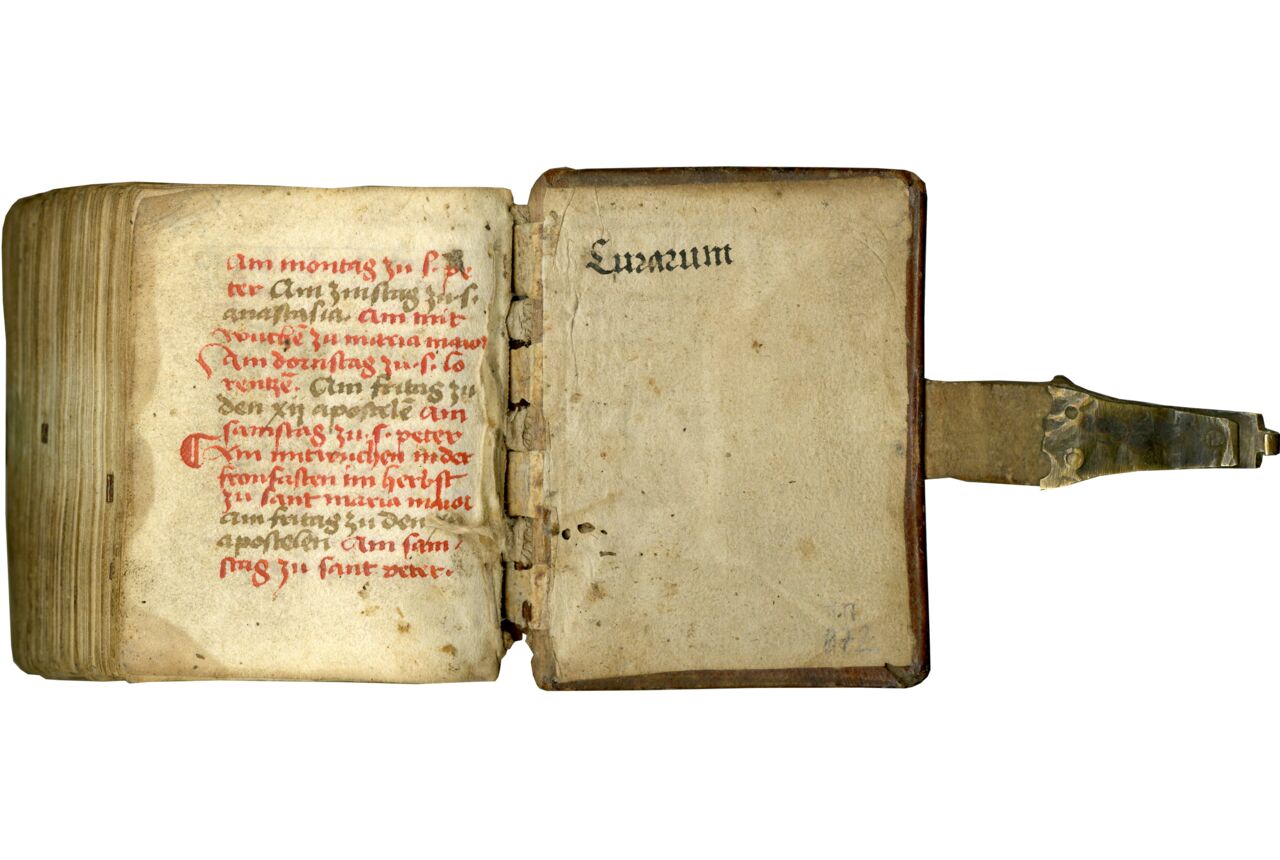 Am montag zu s. pe
ter Am zinstag zu s.
anastasia. Am mit
wuchē zu maria maior
Am dornstag zu s. lo
rentzē. Am fritag zu
den xij apostelē Am
samstag zu s. peter
Am mitwuchen in der
fronfasten im herbst
zu sant maria maior
Am fritag zu den
apostelen Am sam
stag zu sant peter.
Lurarum